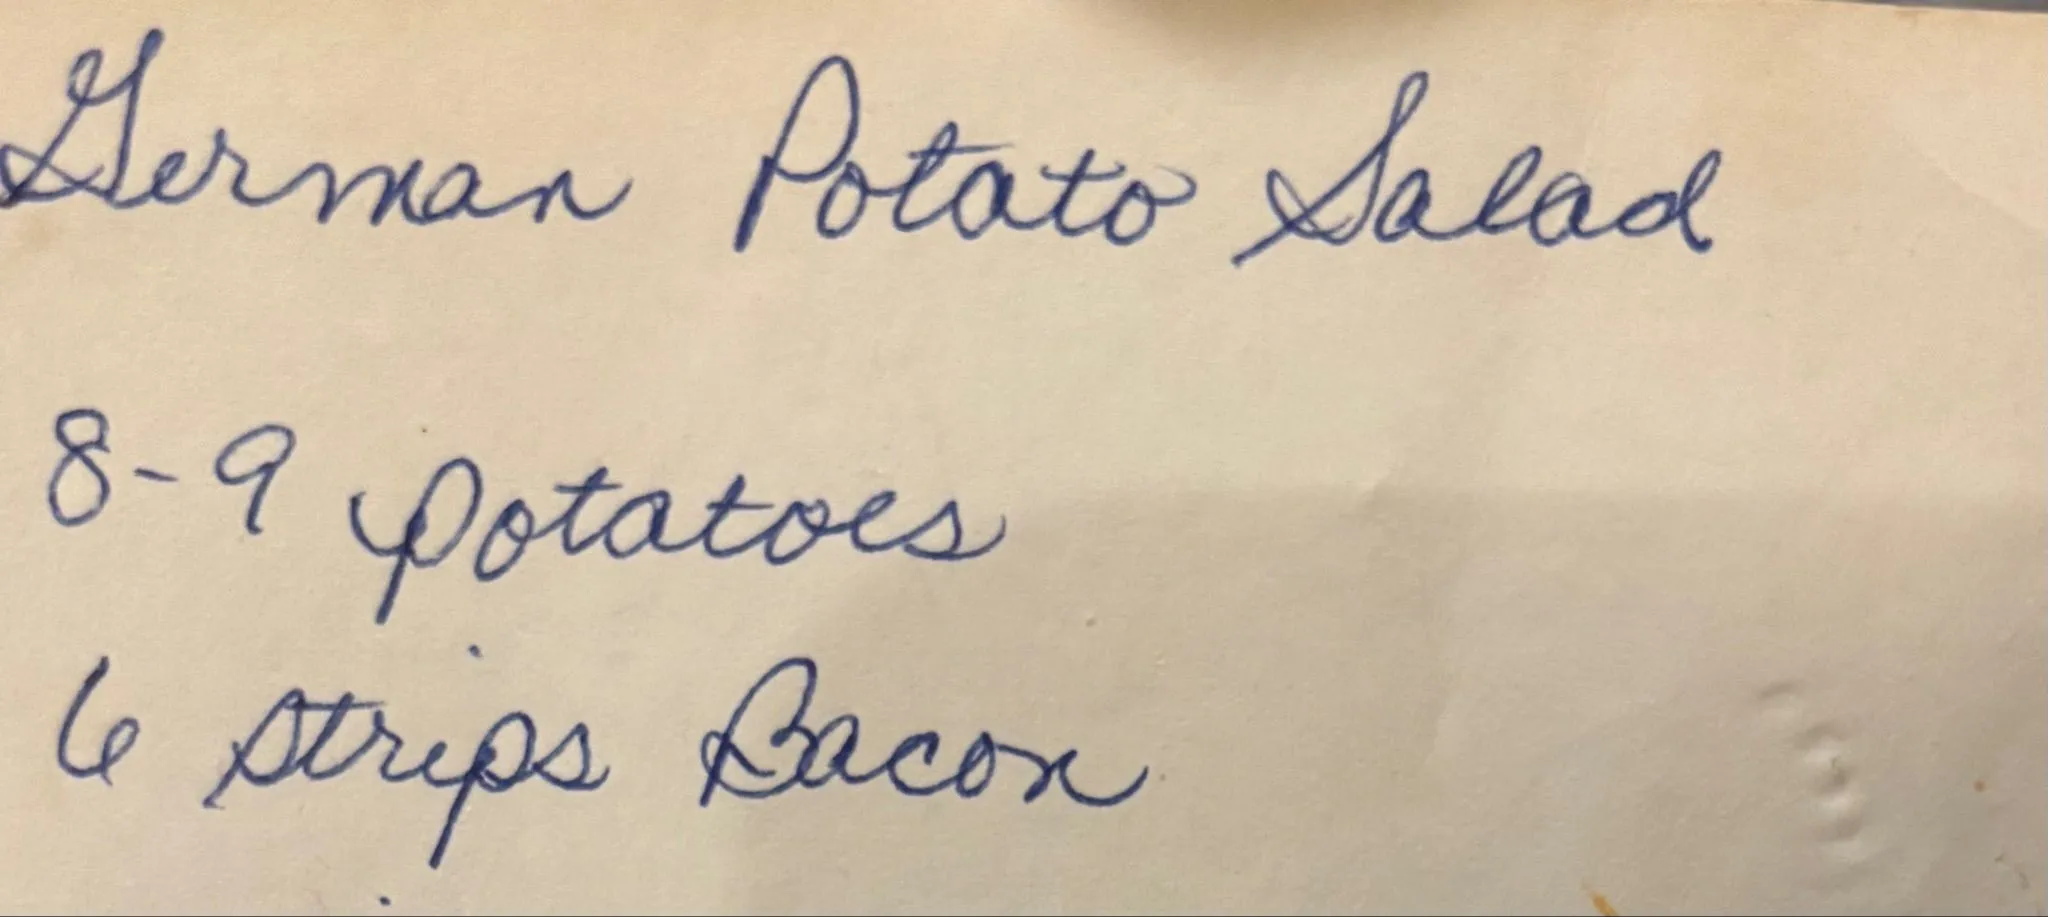 German Potato Salad
8-9 potatoes
6 strips Bacon